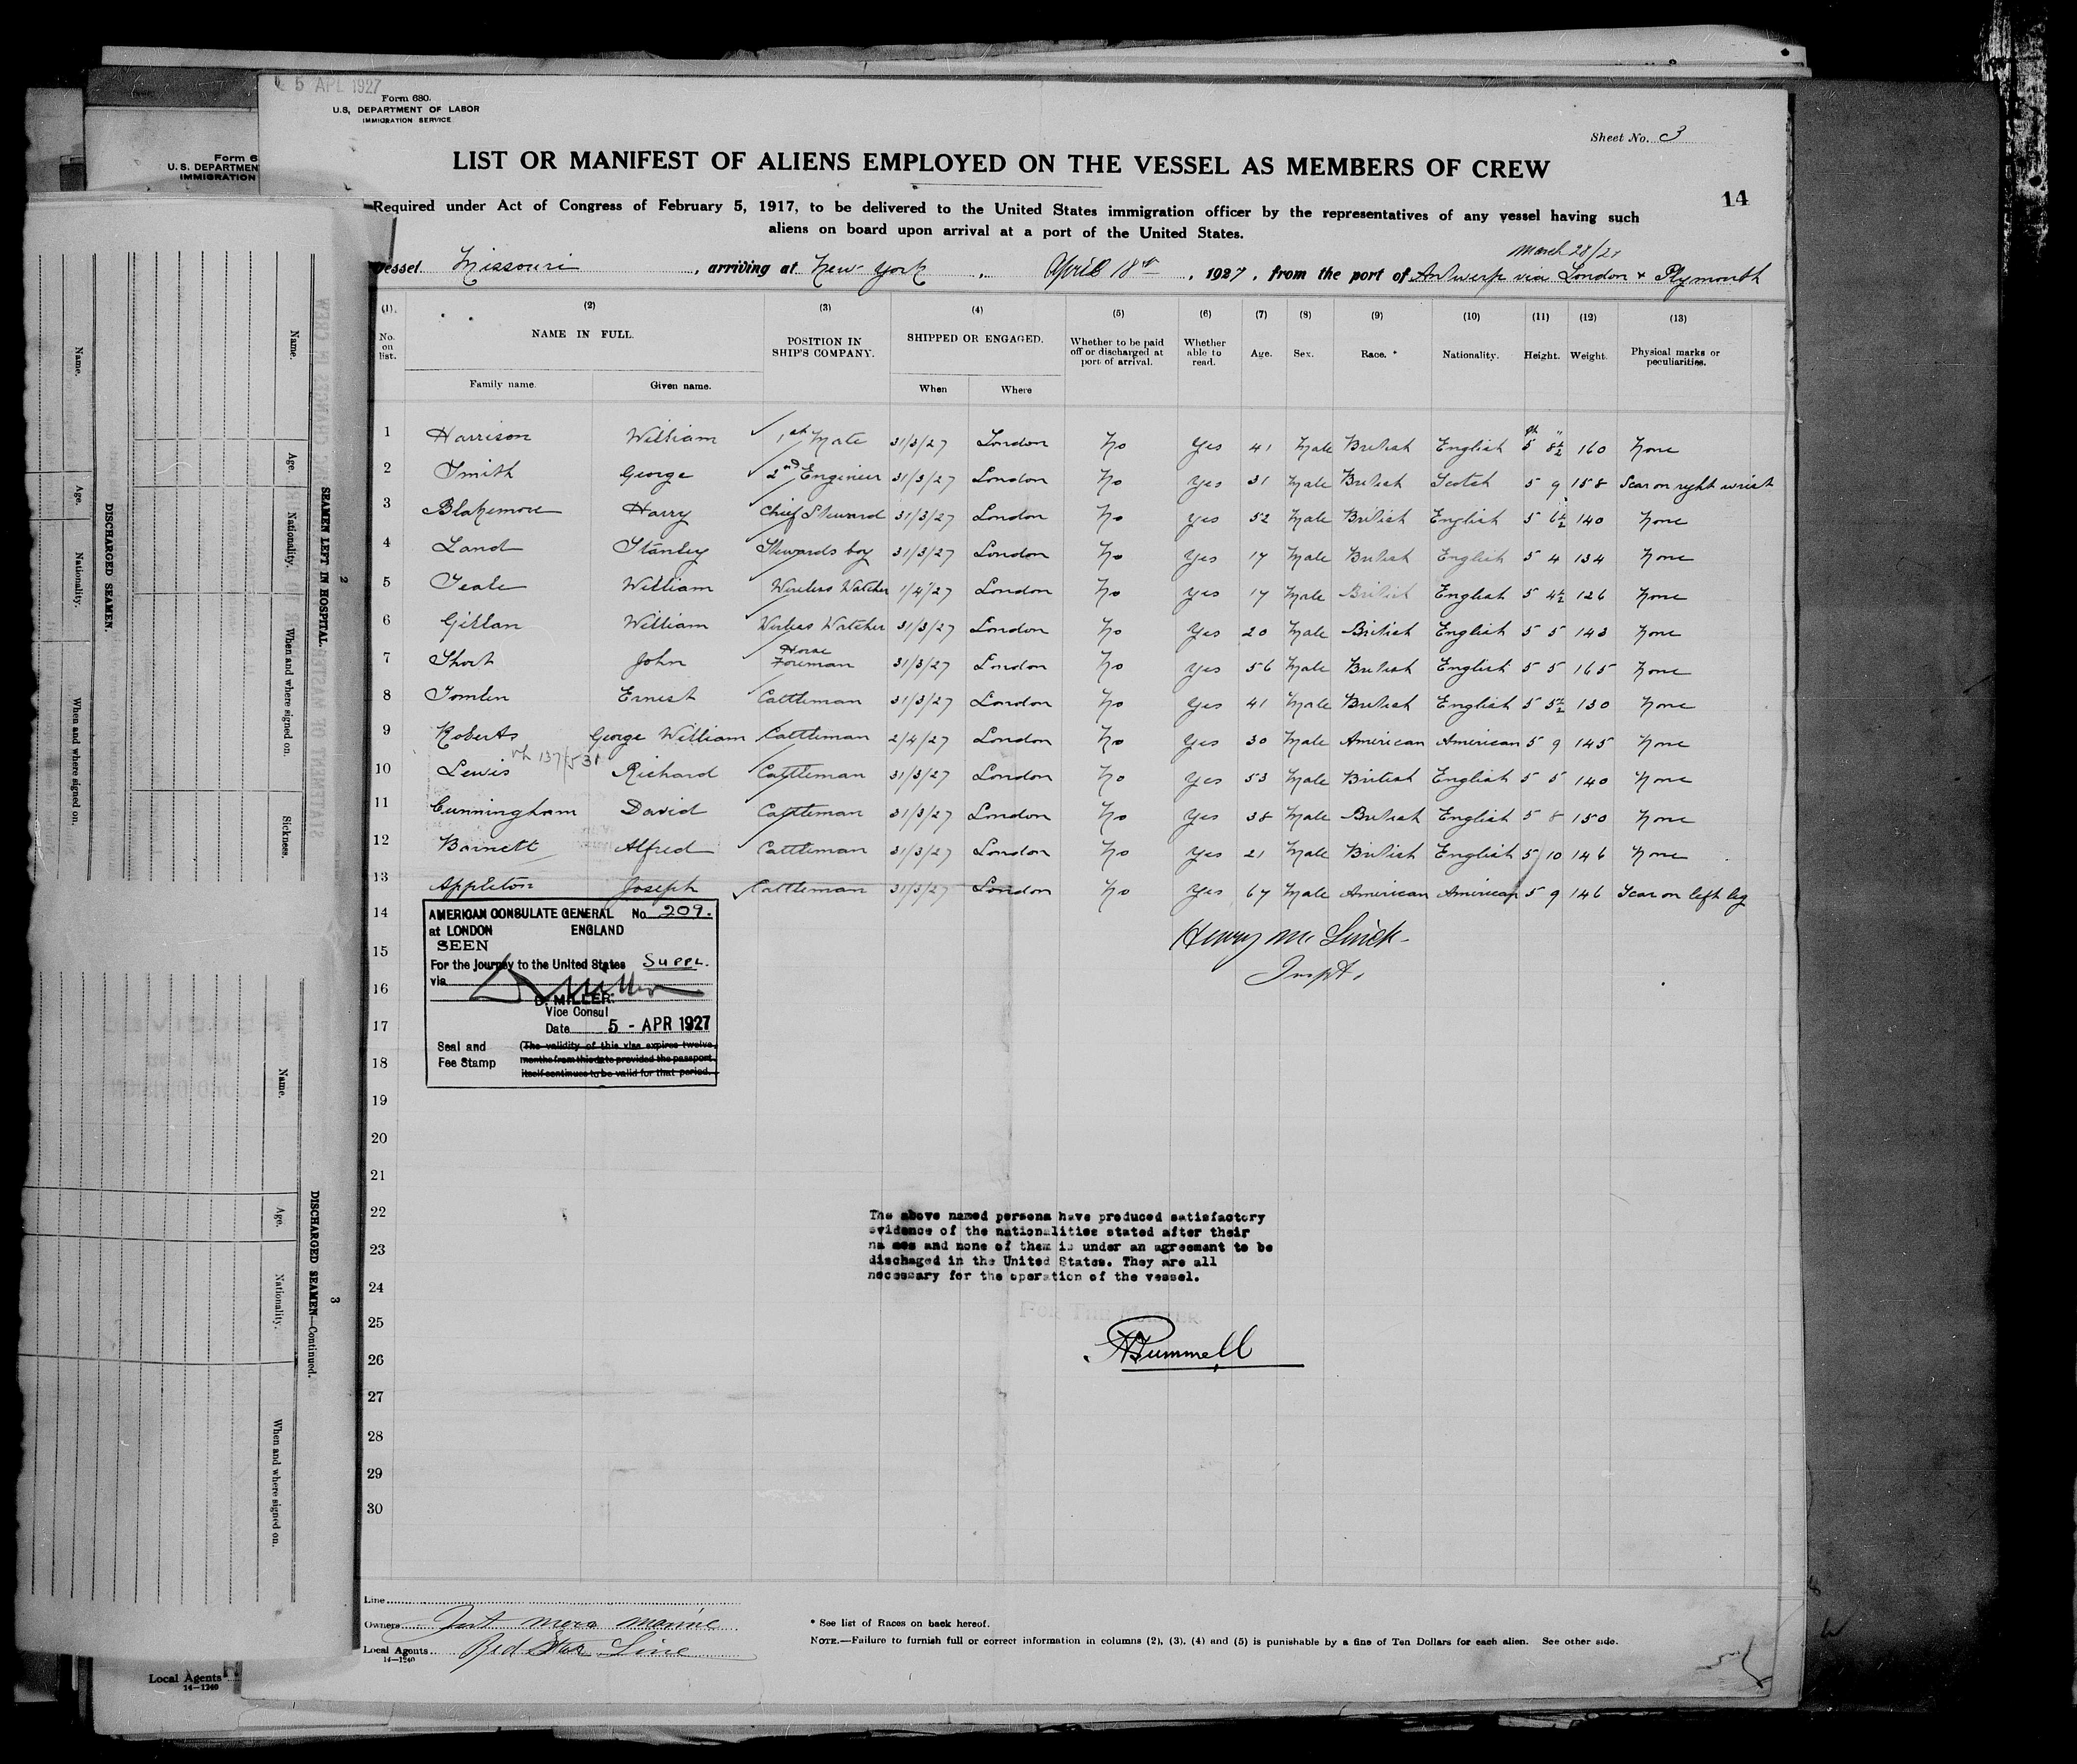 5 APL 1927
Form 680.
U.S. DEPARTMENT OF LABOR
IMMIGRATION SERVICE
Sheet No. 3
LIST OR MANIFEST OF ALIENS EMPLOYED ON THE VESSEL AS MEMBERS OF CREW
14
Required under Act of Congress of February 5, 1917, to be delivered to the United States immigration officer by the representatives of any vessel having such
aliens on board upon arrival at a port of the United States.
March 28/27
essel Missouri, arriving at New York, April 18th, 1927, from the port of Antwerp via London & Plymouth
(1) (2) (3) (4) (5) (6) (7) (8) (9) (10) (11) (12) (13)
No. on list. NAME IN FULL. POSITION IN SHIP'S COMPANY. SHIPPED OR ENGAGED. Whether to be paid off or discharged at port of arrival. Whether able to read. Age. Sex. Race.* Nationality. Height. Weight. Physical marks or peculiarities.
Family name. Given name. When Where
1 Harrison William 1st Mate 31/3/27 London No Yes 41 Male British English 5 8½ 160 None
2 Smith George 2nd Engineer 31/3/27 London No Yes 31 Male British Scotch 5 9 158 Scar on right wrist
3 Blakemore Harry Chief Steward 31/3/27 London No Yes 52 Male British English 5 6½ 140 None
4 Land Stanley Stewards boy 31/3/27 London No Yes 17 Male British English 5 4 134 None
5 Teale William Wireless Watcher 1/4/27 London No Yes 17 Male British English 5 4½ 126 None
6 Gillan William Wireless Watcher 31/3/27 London No Yes 20 Male British English 5 5 143 None
7 Short John Horse Foreman 31/3/27 London No Yes 56 Male British English 5 5 165 None
8 Tomlin Ernest Cattleman 31/3/27 London No Yes 41 Male British English 5 5½ 130 None
9 Roberts George William Cattleman 2/4/27 London No Yes 30 Male American American 5 9 145 None
10 Lewis Richard Cattleman 31/3/27 London No Yes 53 Male British English 5 5 140 None
11 Cunningham David Cattleman 31/3/27 London No Yes 38 Male British English 5 8 150 None
12 Barnett Alfred Cattleman 31/3/27 London No Yes 21 Male British English 5 10 146 None
13 Appleton Joseph Cattleman 31/3/27 London No Yes 67 Male American American 5 9 146 Scar on left leg
14
15
16
17
18
19
20
21
22
23
24
25
26
27
28
29
30
AMERICAN CONSULATE GENERAL No. 209.
at LONDON ENGLAND
SEEN
For the journey to the United States Suppl.
via
D. MILLER.
Vice Consul
Date 5 - APR 1927
Seal and Fee Stamp
(The validity of this visa expires twelve
months from this date provided the passport
itself continues to be valid for that period.
Inspt.
The above named persons have produced satisfactory
evidence of the nationalities stated after their
na mes and none of them is under an agreement to be
dischaged in the United States. They are all
necessary for the operation of the vessel.
FOR THE MASTER
Line
Owners
Local Agents Red Star Line
14—1240
* See list of Races on back hereof.
NOTE.—Failure to furnish full or correct information in columns (2), (3), (4) and (5) is punishable by a fine of Ten Dollars for each alien. See other side.
Form 6
U.S. DEPARTMEN
IMMIGRATION
2
SEAMEN LEFT IN HOSPITAL.
Name. Age. Nationality. When and where signed on. Sickness.
DISCHARGED SEAMEN.
Name. Age. Nationality. When and where signed on.
3
DISCHARGED SEAMEN—Continued.
Name. Age. Nationality. When and where signed on.
Local Agents
14—1240